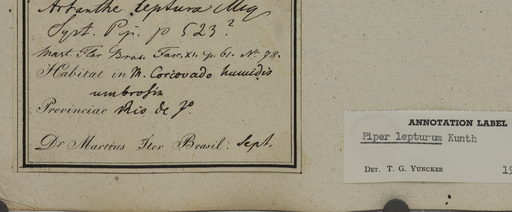 Artanthe leptura Miq
Syst. Pip. p 523?
Mart. Iter Bras. Fasc. XI. p. 61. No. 78.
Habitat in M. Corcovado humidis
umbrosis
Provinciae Rio de Jo.
Dr Martius Iter Brasil: Sept.
ANNOTATION LABEL
Piper lepturum Kunth
DET. T. G. YUNCKER 19